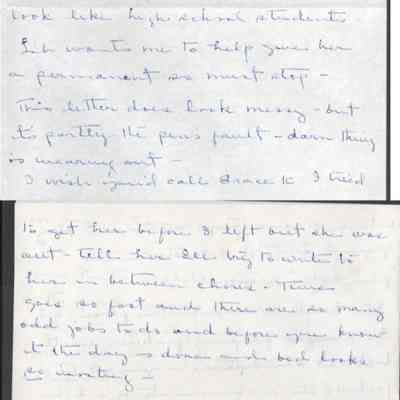 look like high school students.
Lil wants me to help give her
a permanent so must stop -
This letter does look messy - but
its partly the pen's fault - darn thing
is wearing out -
I wish you'd call Grace K I tried
to get her before I left but she was
out - tell her I'll try to write to
her in between chores - Time
goes so fast and there are so many
odd jobs to do and before you know
it the day is done and bed looks
so inviting -